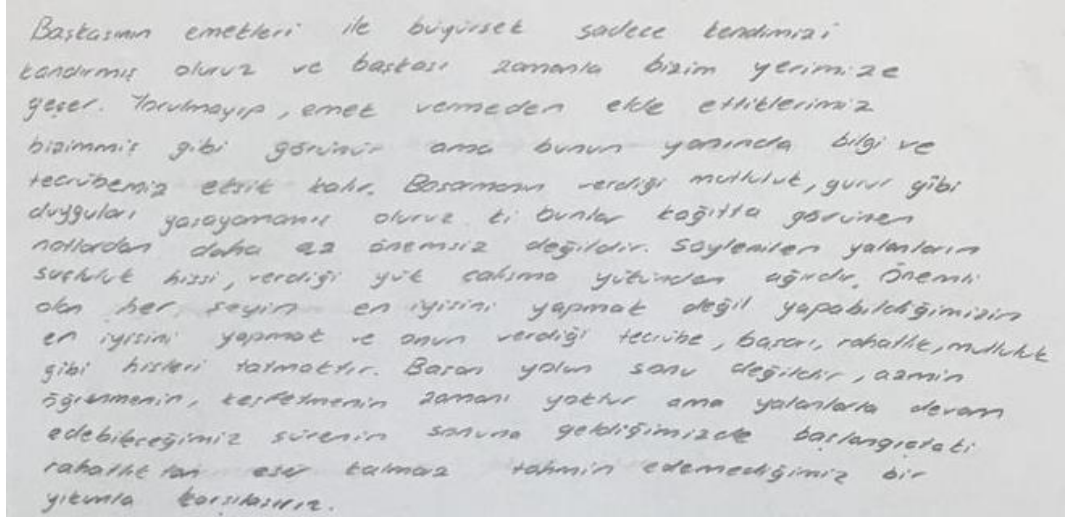 Başkasının emekleri ile büyürsek sadece kendimizi
kandırmış oluruz ve başkası zamanla bizim yerimize
geçer. Yorulmayıp, emek vermeden elde ettiklerimiz
bizimmiş gibi görünür ama bunun yanında bilgi ve
tecrübemiz eksik kalır. Başarmanın verdiği mutluluk, gurur gibi
duyguları yaşayamamış oluruz ki bunlar kağıtta görünen
notlardan daha az önemsiz değildir. Söylenilen yalanların
suçluluk hissi, verdiği yük çalışma yükünden ağırdır. Önemli
olan her şeyin en iyisini yapmak değil yapabildiğimizin
en iyisini yapmak ve onun verdiği tecrübe, başarı, rahatlık, mutluluk
gibi hisleri tatmaktır. Başarı yolun sonu değildir, azmin
öğrenmenin, keşfetmenin zamanı yoktur ama yalanlarla devam
edebileceğimiz sürenin sonuna geldiğimizde başlangıçtaki
rahatlıktan eser kalmaz tahmin edemediğimiz bir
yıkımla karşılaşırız.